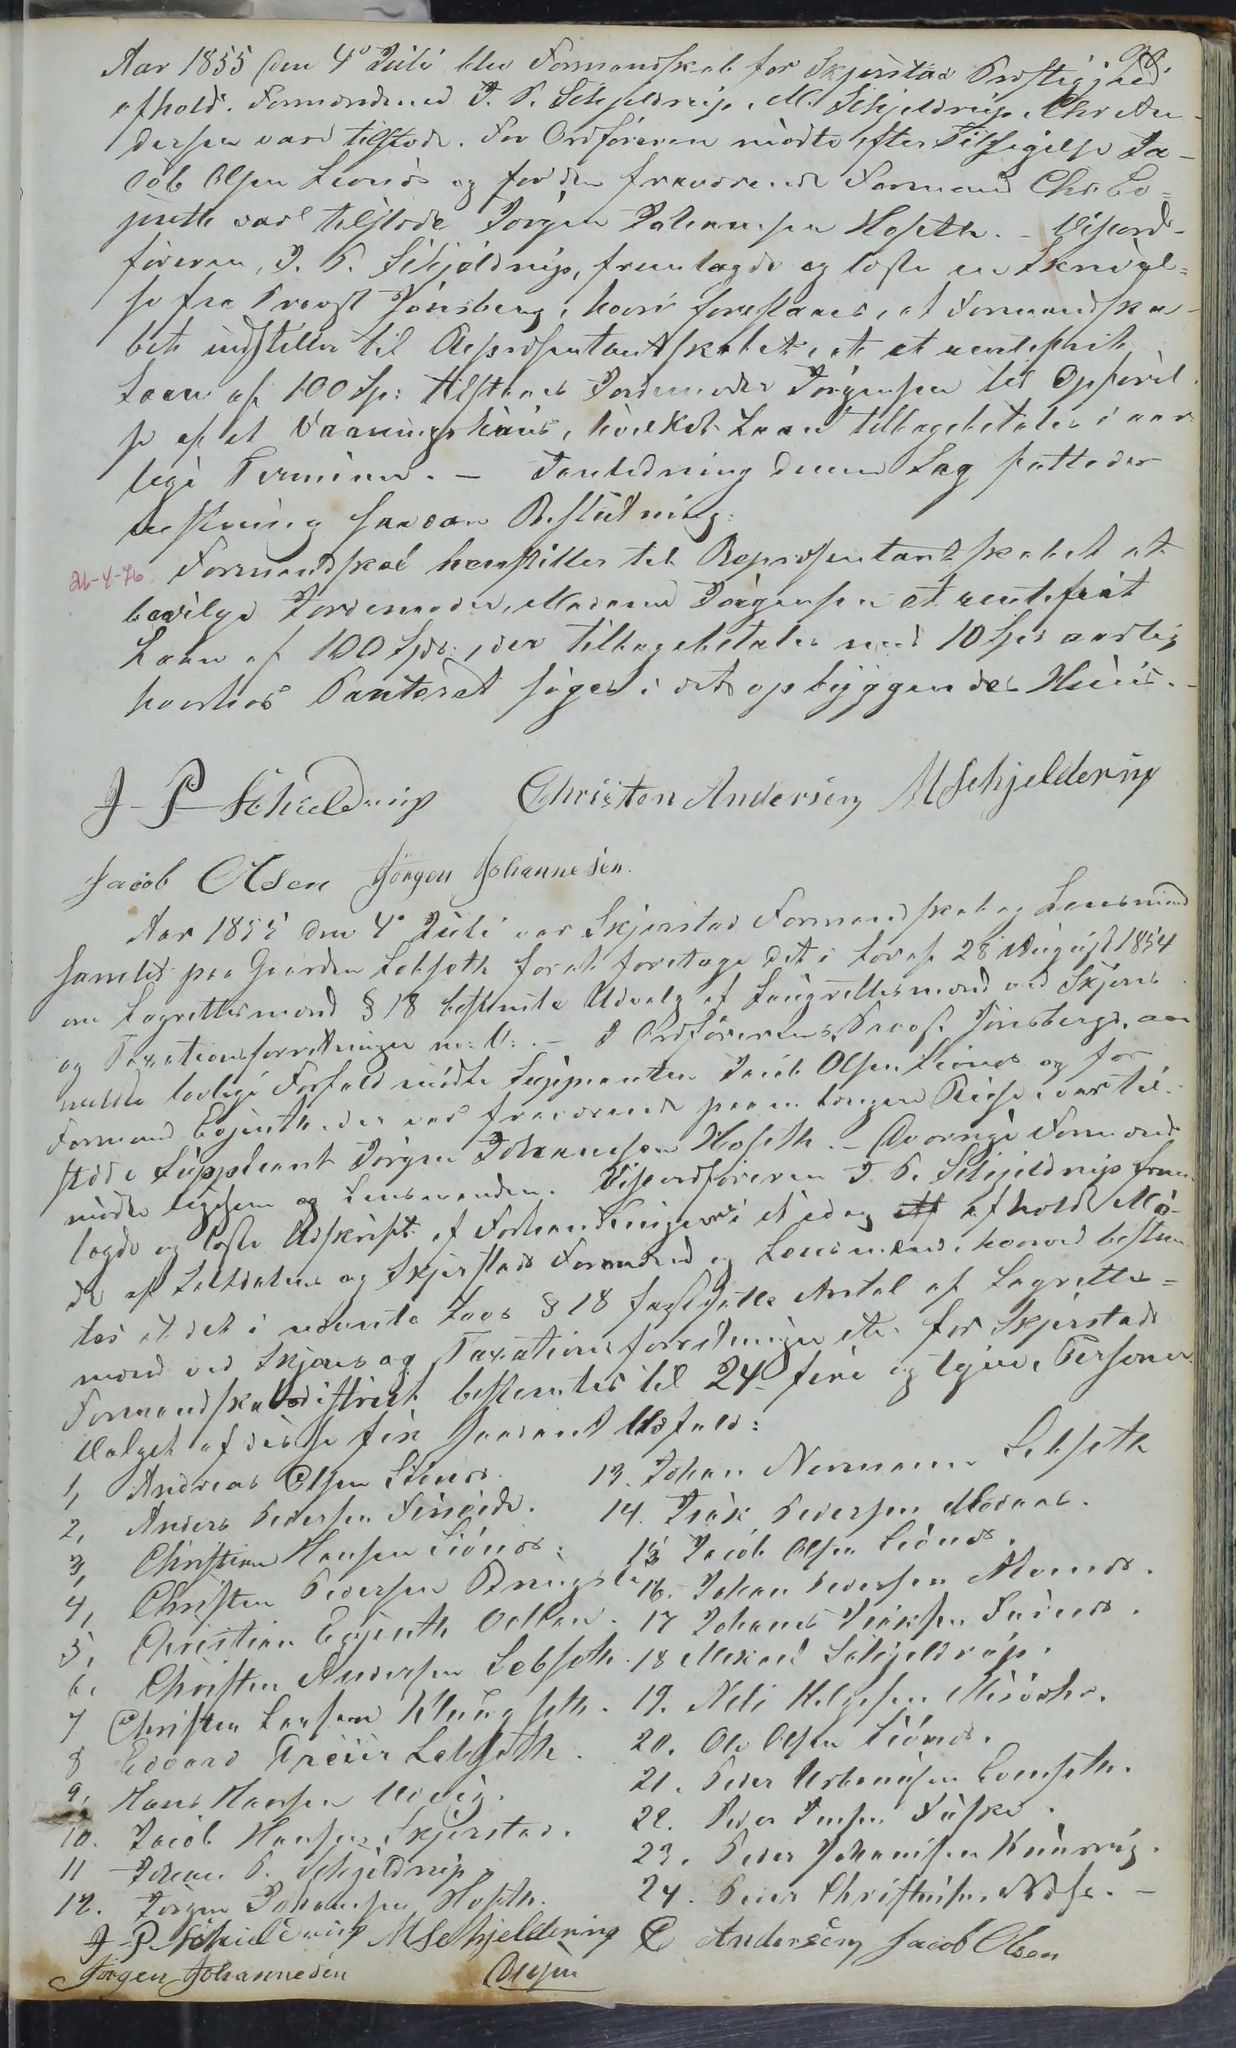 Aar 1855 den 4de Juli blev Formandskab for Skjerstad Præstegjeld
afholdt. Formændene J. P. Schjeldrup, M. Schjeldrup, Chr. An-
dersen vare tilstede. For Ordføreren mødte efter Tilsigelse Ja-
cob Olsen Leonæs og for den fraværende Formand Chr. Eo-
junth var tilstede Jørgen Johannesen Hoseth. – Viseord-
føreren, J. P. Schjeldrup, fremlagde og læste en Skrivel-
se fra Provst Jønsberg, hvori foreslaaes, at Formandska-
bet indstiller til Repræsentantskabet, at et rentefrit
Laan af 100 Sp: tilstaaes Jordemoder Jørgensen til Opførel-
se af et Vaaningshuus, hvilket Laan tilbagebetales i aar-
lige Terminer. – I Anledning denne Sag fattedes
saadan Beslutning:
26-4-76
Formandskab henstiller til Repræsentantskabet at
bevilge Jordemoder, Madame Jørgensen et rentefrit
Laan af 100 Spd:, der tilbagebetales med 10 Spd aarlig
hvorhos Panteret søges i det opbyggendes Huus. –
J- P- Schieldrup Christen Andersen M Schjelderup
Jacob Olsen Jörgen Johannesen.
Aar 1855 den 4de Juli var Skjerstad Formandskab og Lensmand
samlet paa Gaarden Løbseth for at foretage det i Lov af 28 August 1854
om Lagrettesmænd § 18 bestemte Udvalg af Laugrettesmænd ved Skjøns
og Taxationsforretninger m: V: – I Ordførerens, Provst Jønsbergs, an-
meldte lovlige Forfald mødte Suppleanten Jacob Olsen Leonæs og for
Formand Eojunth, der var fraværende paa en længere Reise var til-
stede Suppleant Jørgen Johannesen Hoseth. – Øvrige Formænd
mødte ligesom og Lensmanden. Viseordføreren J. P. Schjeldrup frem-
lagde og læste Udskrift af Forhandlinger i et idag afholdt Mø-
de af Saltdalens og Skjerstads Formænd og Lensmænd, hvorved bestem-
tes at det i nævnte Lovs § 18 fastsatte Antal af Lagrettes-
mænd ved Skjøns og Taxationsforretninger etc. for Skjerstads
Formandskabsdistrict bestemtes til 24 – fire og tyve, Personer
Valget af disse fik saadant Udfald:
1, Andreas Olsen Leonæs.
2, Anders Pedersen Fineide.
3, Christian Hansen Leonæs.
4, Christen Pedersen
5, Christian Eojunth
6. Christen Andersen Løbseth.
7 Christen Larsen Klungseth.
8 Edvard Løbseth.
9, Hans Hansen
10. Jacob Hansen Skjerstad.
11 Johan P. Schjeldrup
12. Jørgen Johannesen Hoseth.
13. Johan Normann Løbseth
14. Isak Pedersen
15 Jacob Olsen Leonæs.
16. Johan Pedersen
17 Johannes Isaksen
18 Mikael Schjeldrup.
19. Nils Helgesen Misvær.
20. Ole Olsen Leonæs.
21. Peder Urbanusen
22. Peder Jensen Fuske.
23. Peder Johannesen
24. Peder Christensen –
J- P- Schieldrup M Schjelderup C Andersen Jacob Olsen
Jørgen Johannesen